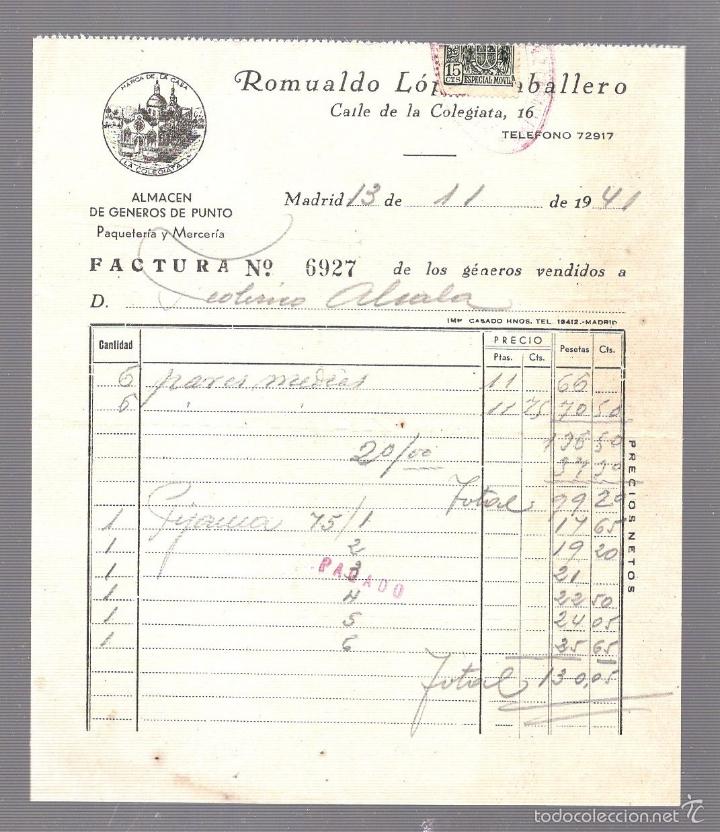 MARCA DE LA CASA
LA COLEGIATA
15 CTS ESPECIAL MOVIL
Romualdo aballero
Calle de la Colegiata, 16
TELEFONO 72917
ALMACEN
DE GENEROS DE PUNTO
Paquetería y Mercería
Madrid 13 de 11 de 1941
FACTURA Nº 6927 de los géneros vendidos a
D. Alcala
IMP. CASADO HNOS. TEL. 19412.-MADRID
Cantidad PRECIO Pesetas Cts.
Ptas. Cts.
6 pares medias 11 66
6 11 75 70 50
136 50
20/00
Total 99 20
1 Pijama 75/1 17 65
1 2 19 20
1 3 21
PAGADO
1 4 22 50
1 5 24 05
1 6 25 65
Total 130,05
PRECIOS NETOS
todocoleccion.net